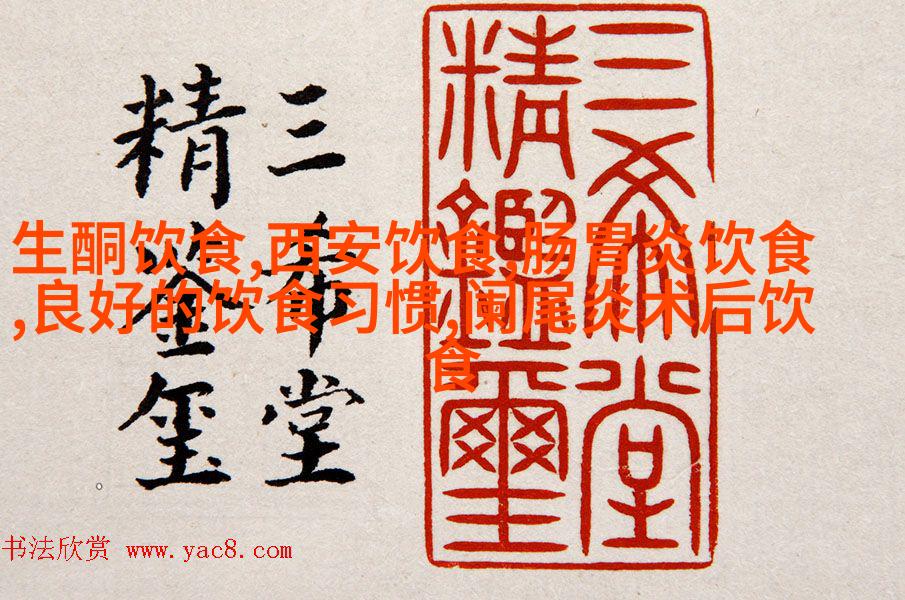 三希堂
精鉴玺
三希堂
精鑑璽
生酮饮食,西安饮食,肠胃炎饮食
,良好的饮食习惯,阑尾炎术后饮
食
书法欣赏 www.yac8.com